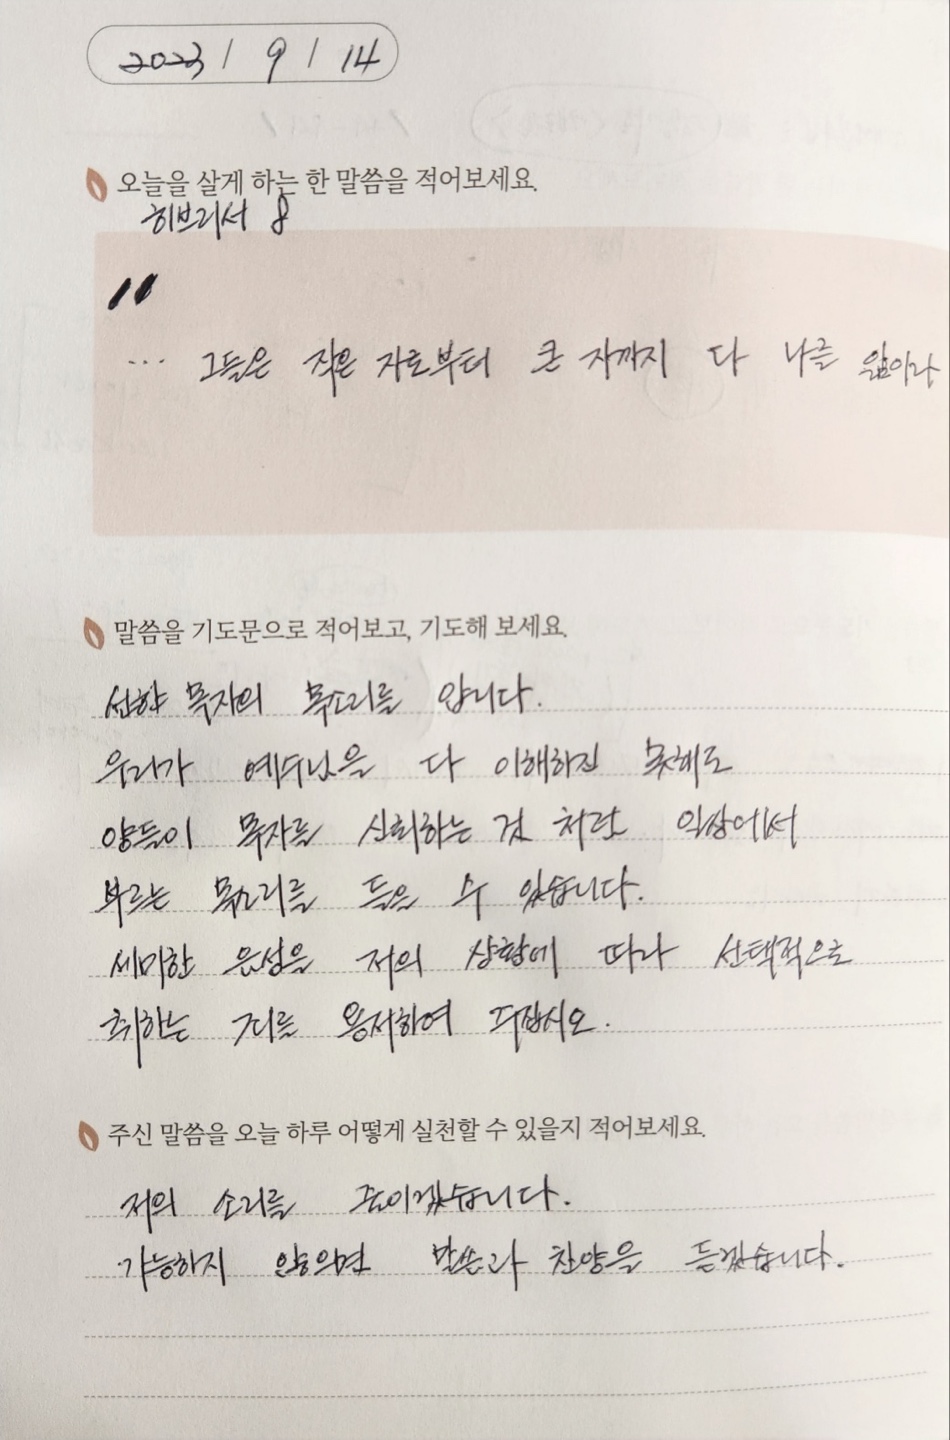 2023 / 9 / 14
오늘을 살게 하는 한 말씀을 적어보세요.
히브리서 8
"
... 그들은 작은 자로부터 큰 자까지 다 나를 앎이라
말씀을 기도문으로 적어보고, 기도해 보세요.
선한 목자의 목소리를 압니다.
우리가 예수님을 다 이해하진 못해도
양들이 목자를 신뢰하는 것 처럼 일상에서
부르는 목소리를 들을 수 있습니다.
세미한 음성을 저의 상황에 따라 선택적으로
취하는 귀를 용서하여 주십시오.
주신 말씀을 오늘 하루 어떻게 실천할 수 있을지 적어보세요.
저의 소리를 줄이겠습니다.
가능하지 않으면 말씀과 찬양을 듣겠습니다.